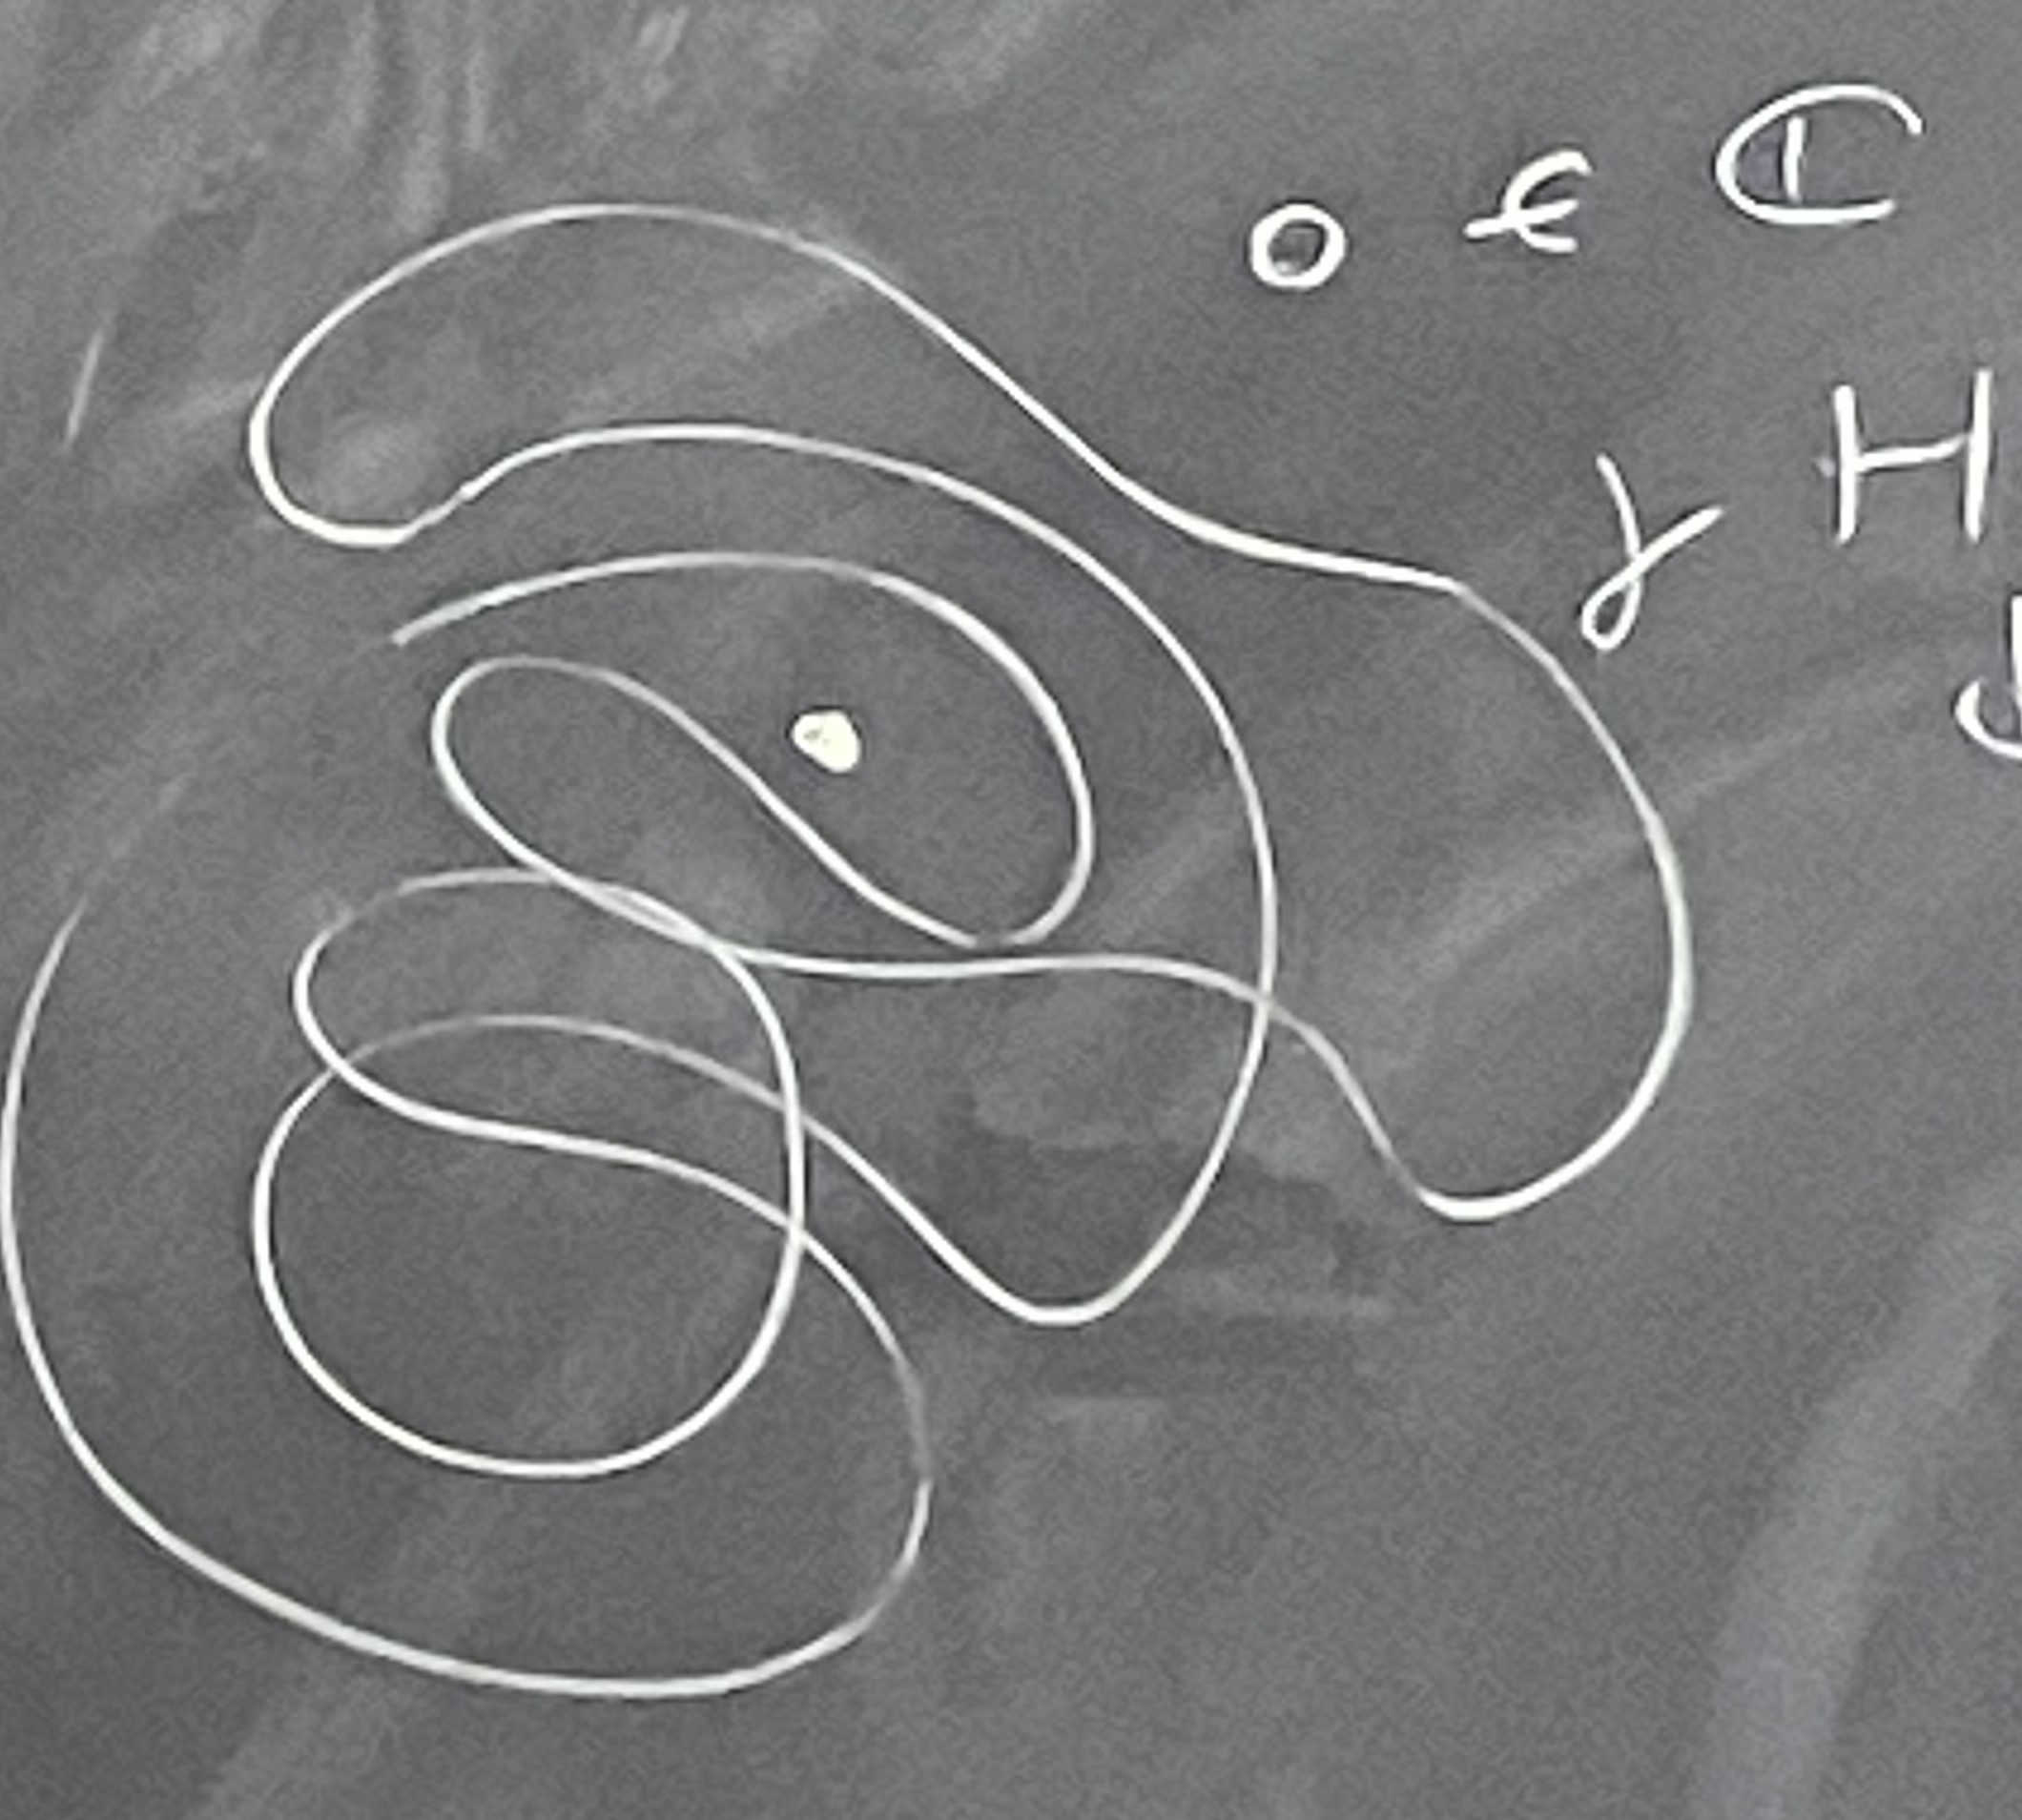 0 ∈ ℂ
γ H